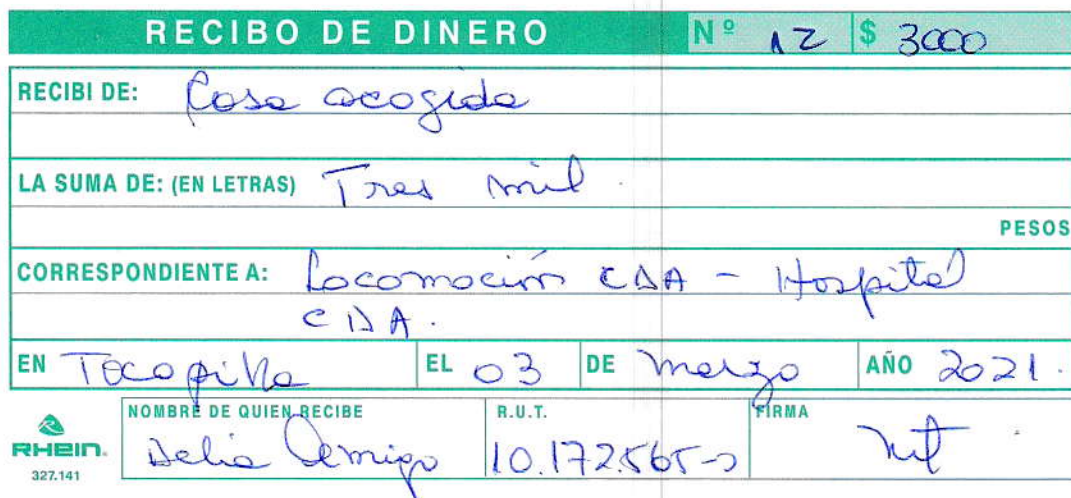 RECIBO DE DINERO Nº 12 $ 3000
RECIBI DE: Casa acogida
LA SUMA DE: (EN LETRAS) Tres mil.
PESOS
CORRESPONDIENTE A: Locomoción CDA - Hospital
CDA.
EN Tocopilla EL 03 DE Marzo AÑO 2021.
NOMBRE DE QUIEN RECIBE R.U.T. FIRMA
Delia Amigo 10.172.565-
RHEIN.
327.141